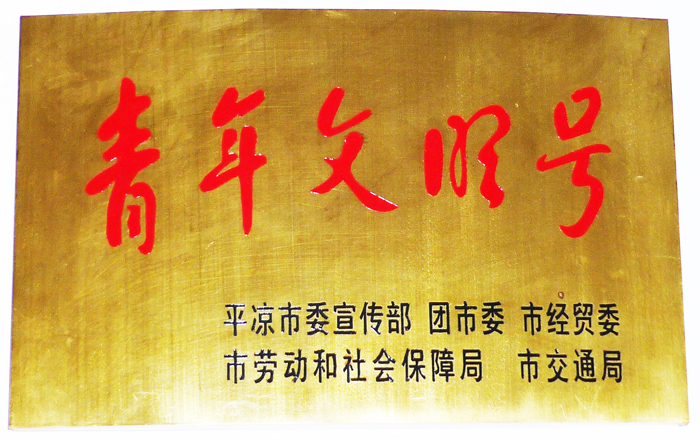 青年文明号
平凉市委宣传部 团市委 市经贸委
市劳动和社会保障局 市交通局